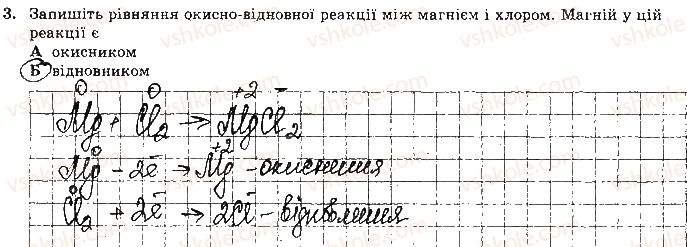 3. Запишіть рівняння окисно-відновної реакції між магнієм і хлором. Магній у цій
реакції є
А окисником
Б відновником
0 0 +2 −
Mg + Cl₂ → MgCl₂
0 +2
Mg − 2ē → Mg − окиснення
0 −
Cl₂ + 2ē → 2Cl − відновлення